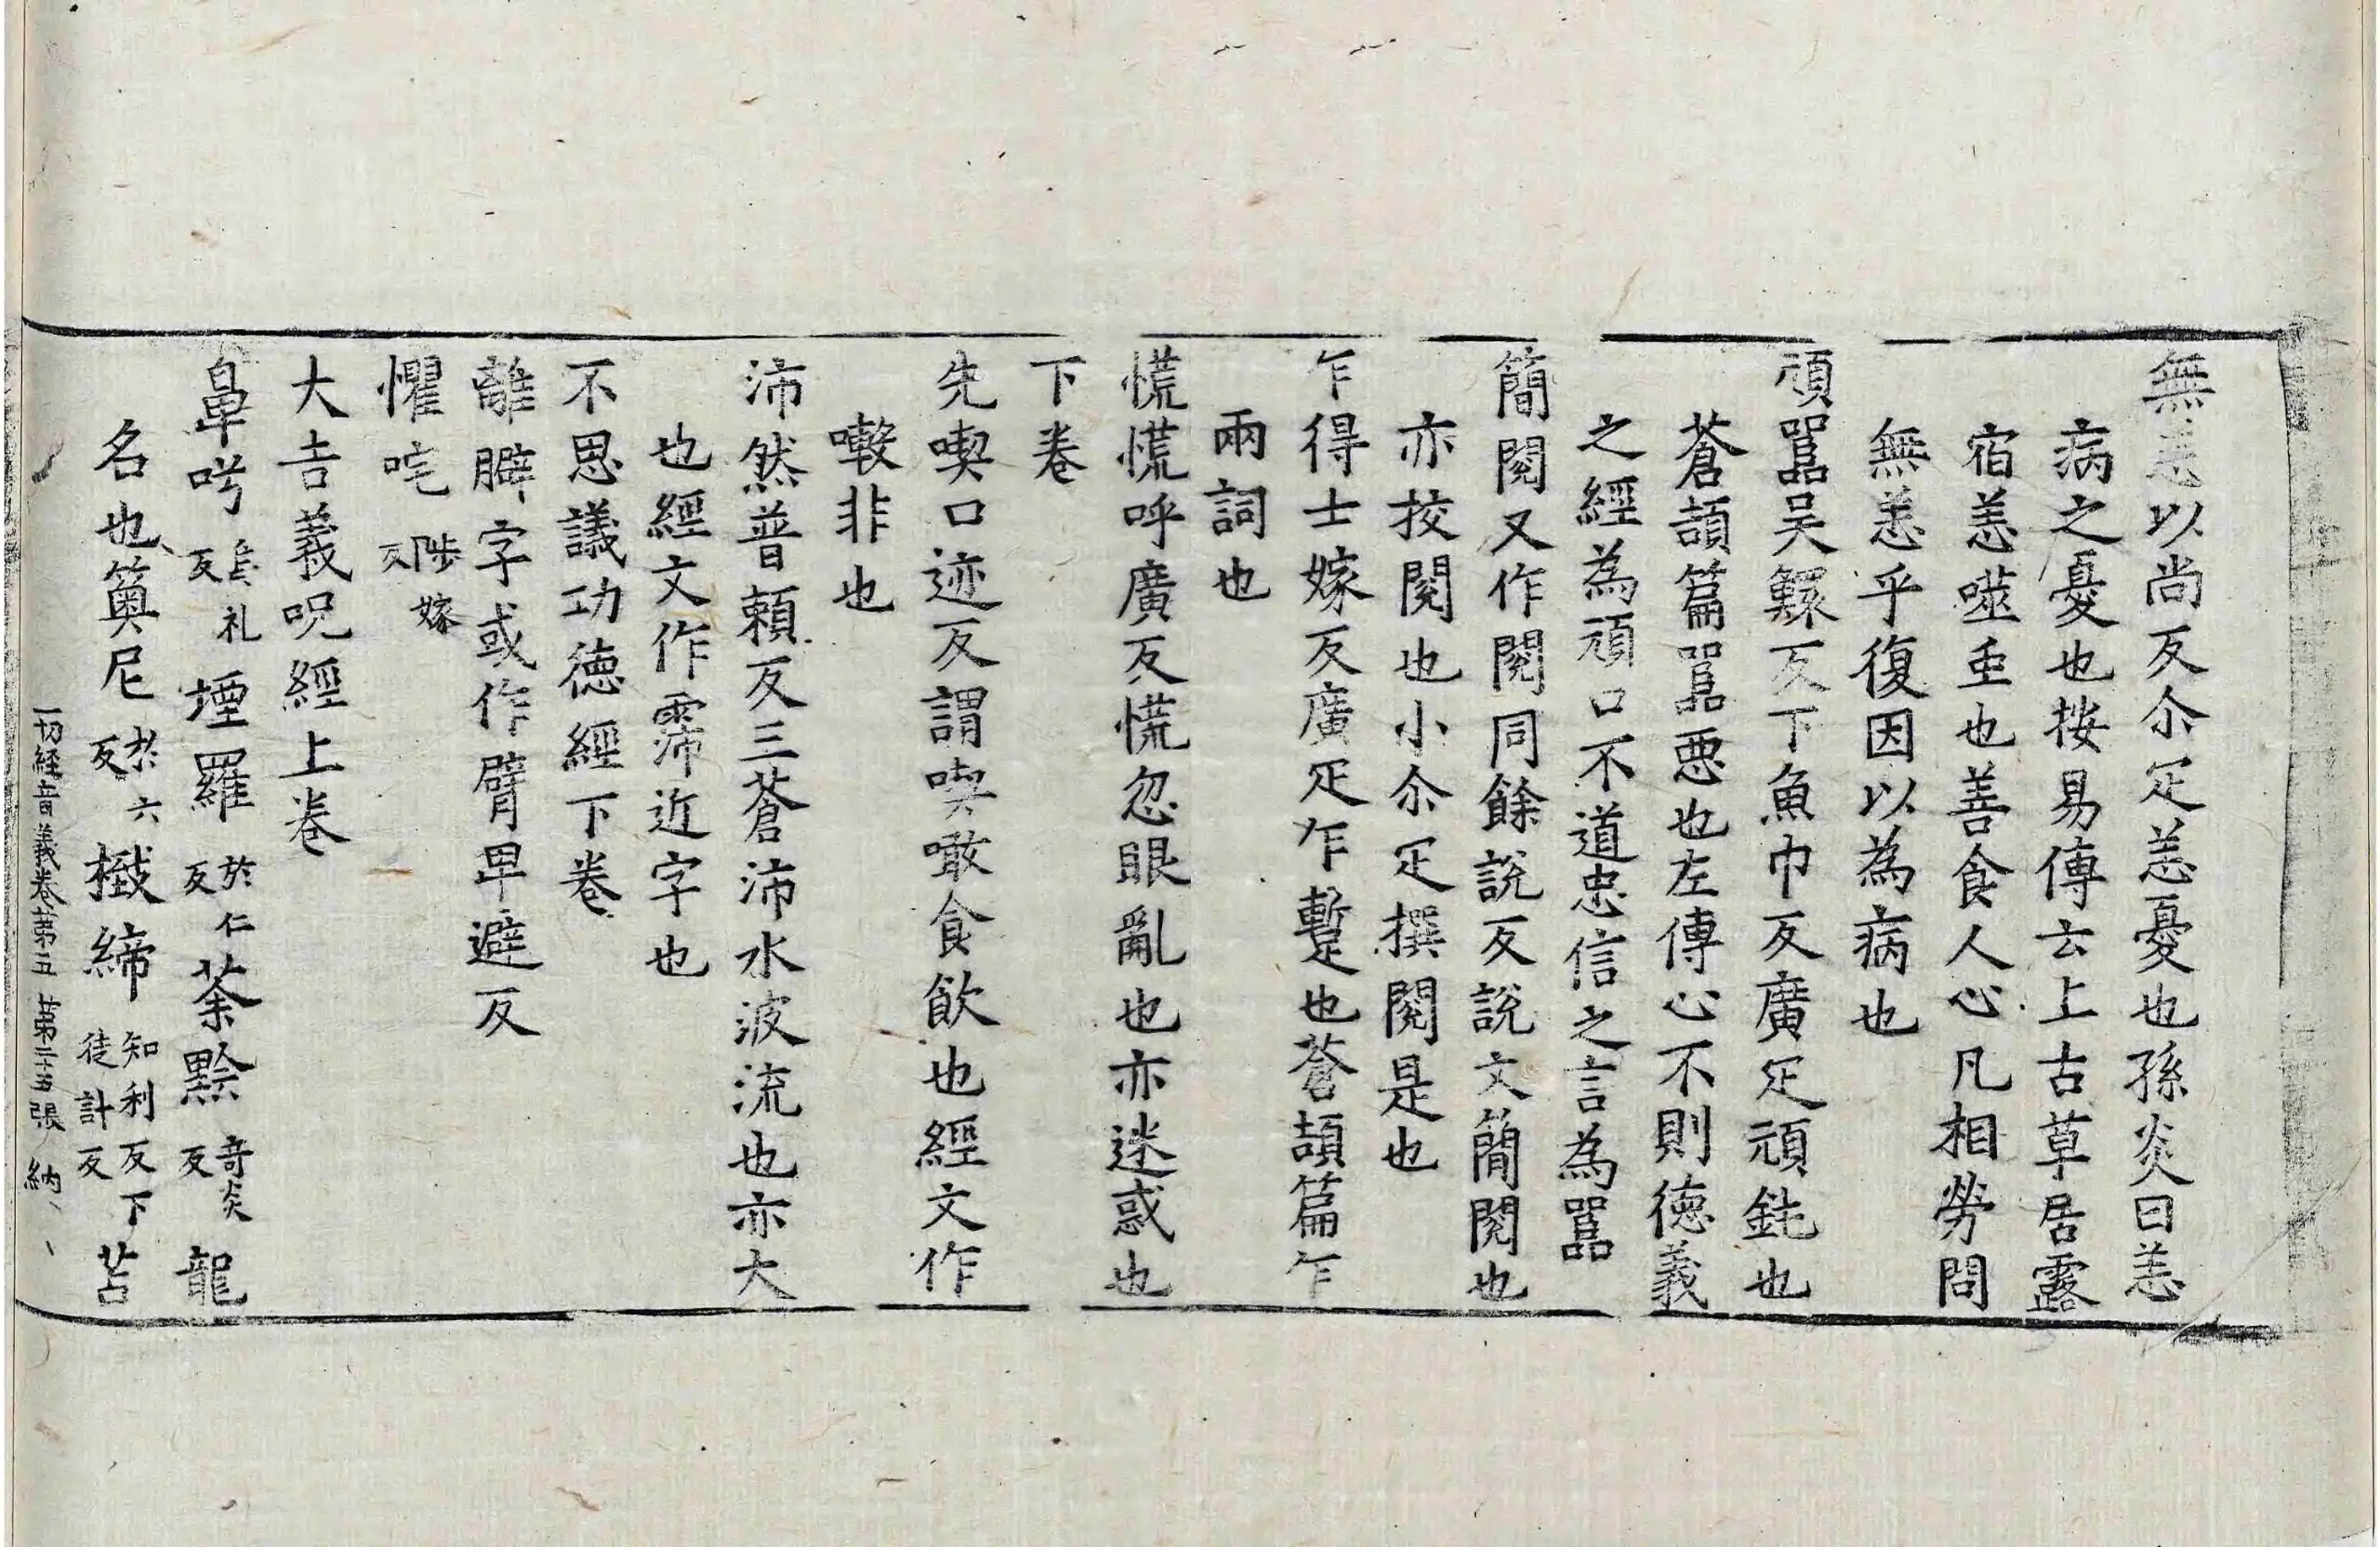 無恙以尚反尒疋恙憂也孫炎曰恙
病之憂也按易傳云上古草居露
宿恙噬虫也善食人心凡相勞問
無恙乎復因以為病也
頑嚚吴鰥反下魚巾反廣疋頑鈍也
蒼頡篇嚚惡也左傳心不則德義
之經為頑口不道忠信之言為嚚
簡閱又作閱同餘說反說文簡閱也
亦挍閱也小尒疋撰閱是也
乍得士嫁反廣疋乍暫也蒼頡篇乍
兩詞也
慌慌呼廣反慌忽眼亂也亦迷惑也
下卷
先喫口迹反謂喫噉食飲也經文作
噭非也
沛然普賴反三蒼沛水波流也亦大
也經文作霈近字也
不思議功德經下卷
離躃字或作臂卑避反
懼咤陟嫁反
大吉義呪經上卷
鼻吘烏礼反堙羅於仁反荼黥奇炎反龍
名也䉛尼於六反㯙締知利反下徒計反苫
一切経音義卷第五 第二十五張 納